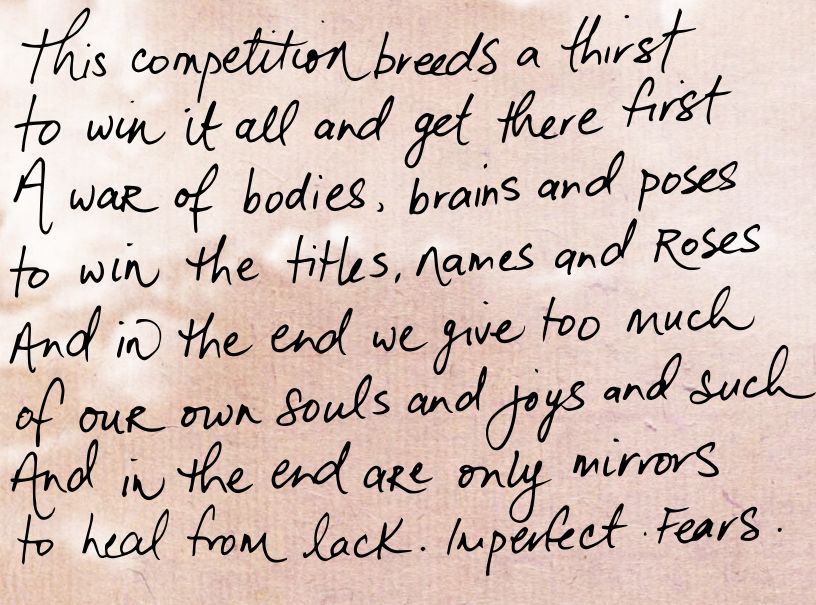 This competition breeds a thirst
to win it all and get there first
A war of bodies, brains and poses
to win the titles, names and Roses
And in the end we give too much
of our own souls and joys and such
And in the end are only mirrors
to heal from lack. Imperfect. Fears.